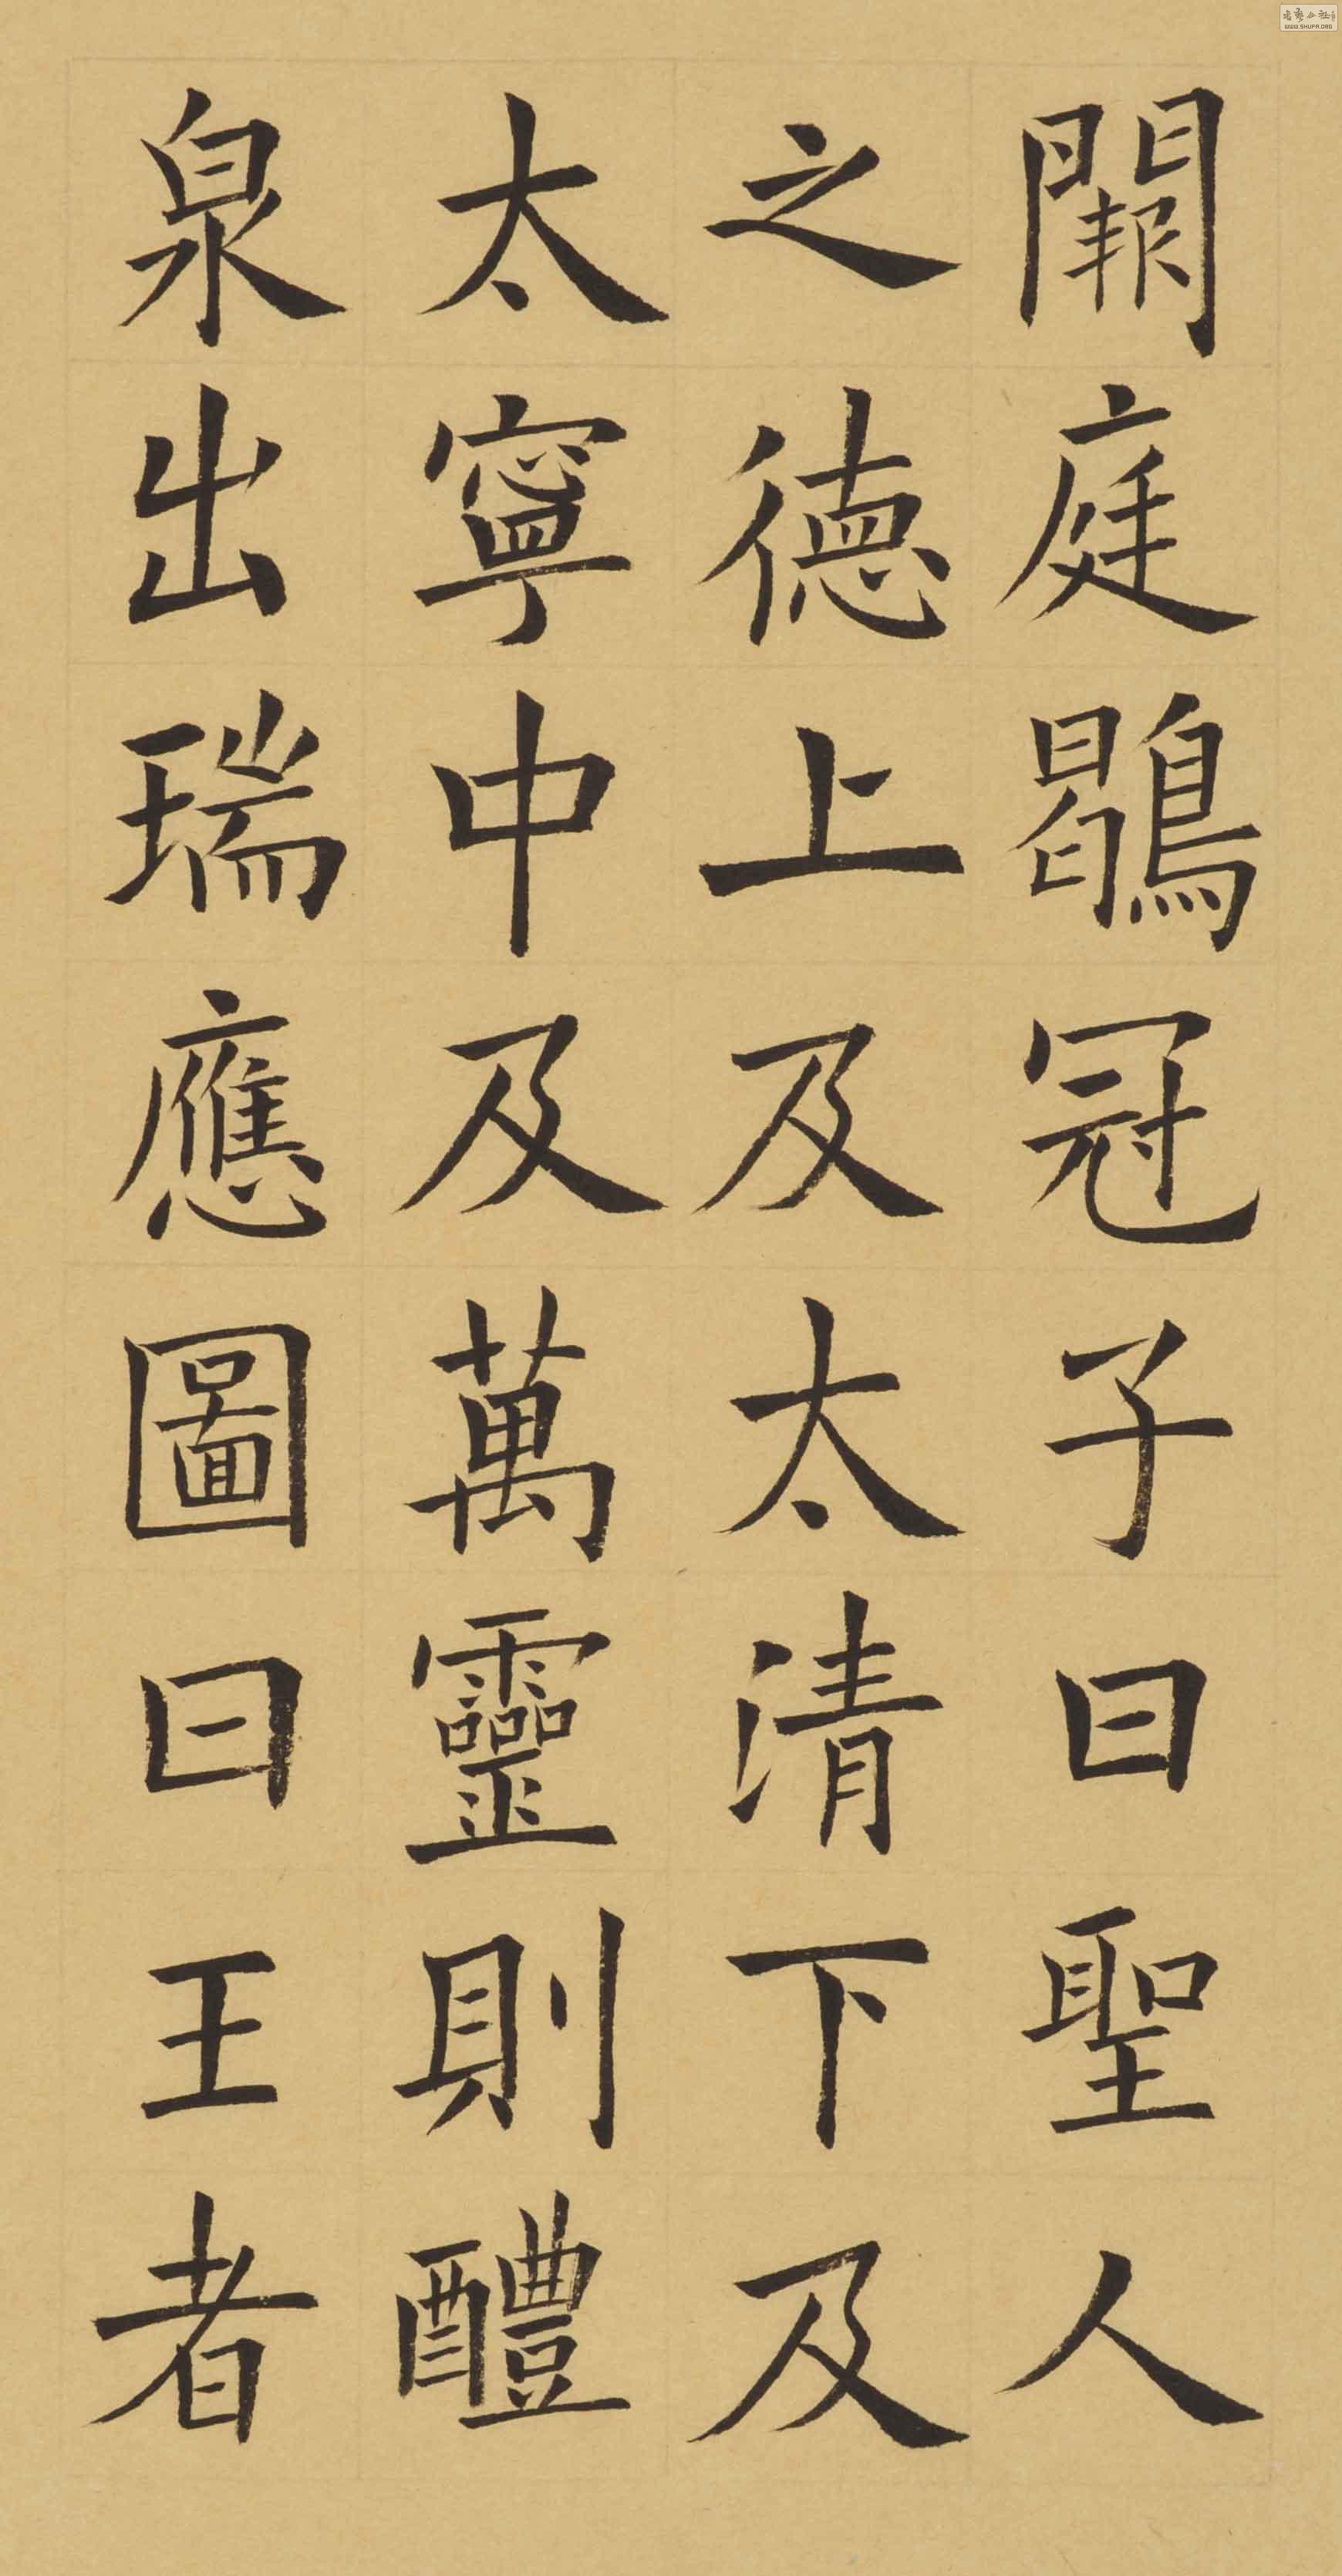 闕庭鶡冠子曰聖人
之德上及太清下及
太寧中及萬靈則醴
泉出瑞應圖曰王者
WWW.SHUFA.ORG